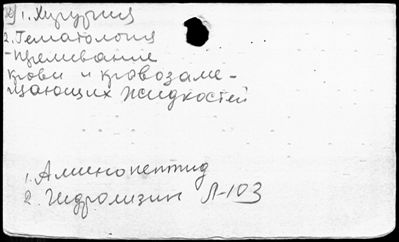 1. Хирургия
2. Гематология
-Преливание
крови и кровозаме-
щающих жидкостей
1. Аминопептид
2. Гидролизин Л-103